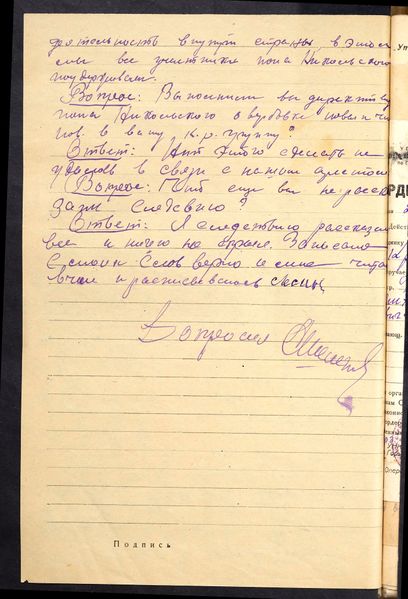 деятельность внутри страны, в этом
мы все участники попа Никольского
поддерживали.
Вопрос: Выполнили вы директиву
попа Никольского о вербовке новых чле
нов в вашу к.р. группу?
Ответ: Нет этого сделать не
удалось в связи с нашим арестом
Вопрос: Что еще вы не расска
зали следствию?
Ответ: Я следствию рассказал
все и ничего не скрыл. Записано
с моих слов верно и мне читa
вчем и расписываюсь
Вопросил
Подпись
Уп
РД
Опер